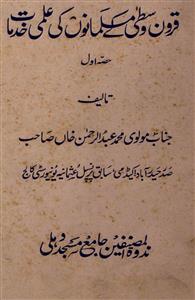 قرون وسطیٰ کے مسلمانوں کی علمی خدمات
حصہ اول
تالیف
جناب مولوی محمد عبدالرحمٰن خاں صاحب
صدر حیدرآباد اکیڈمی، سابق پرنسپل جامعہ عثمانیہ یونیورسٹی کالج
ندوۃ المصنفین جامع مسجد دہلی